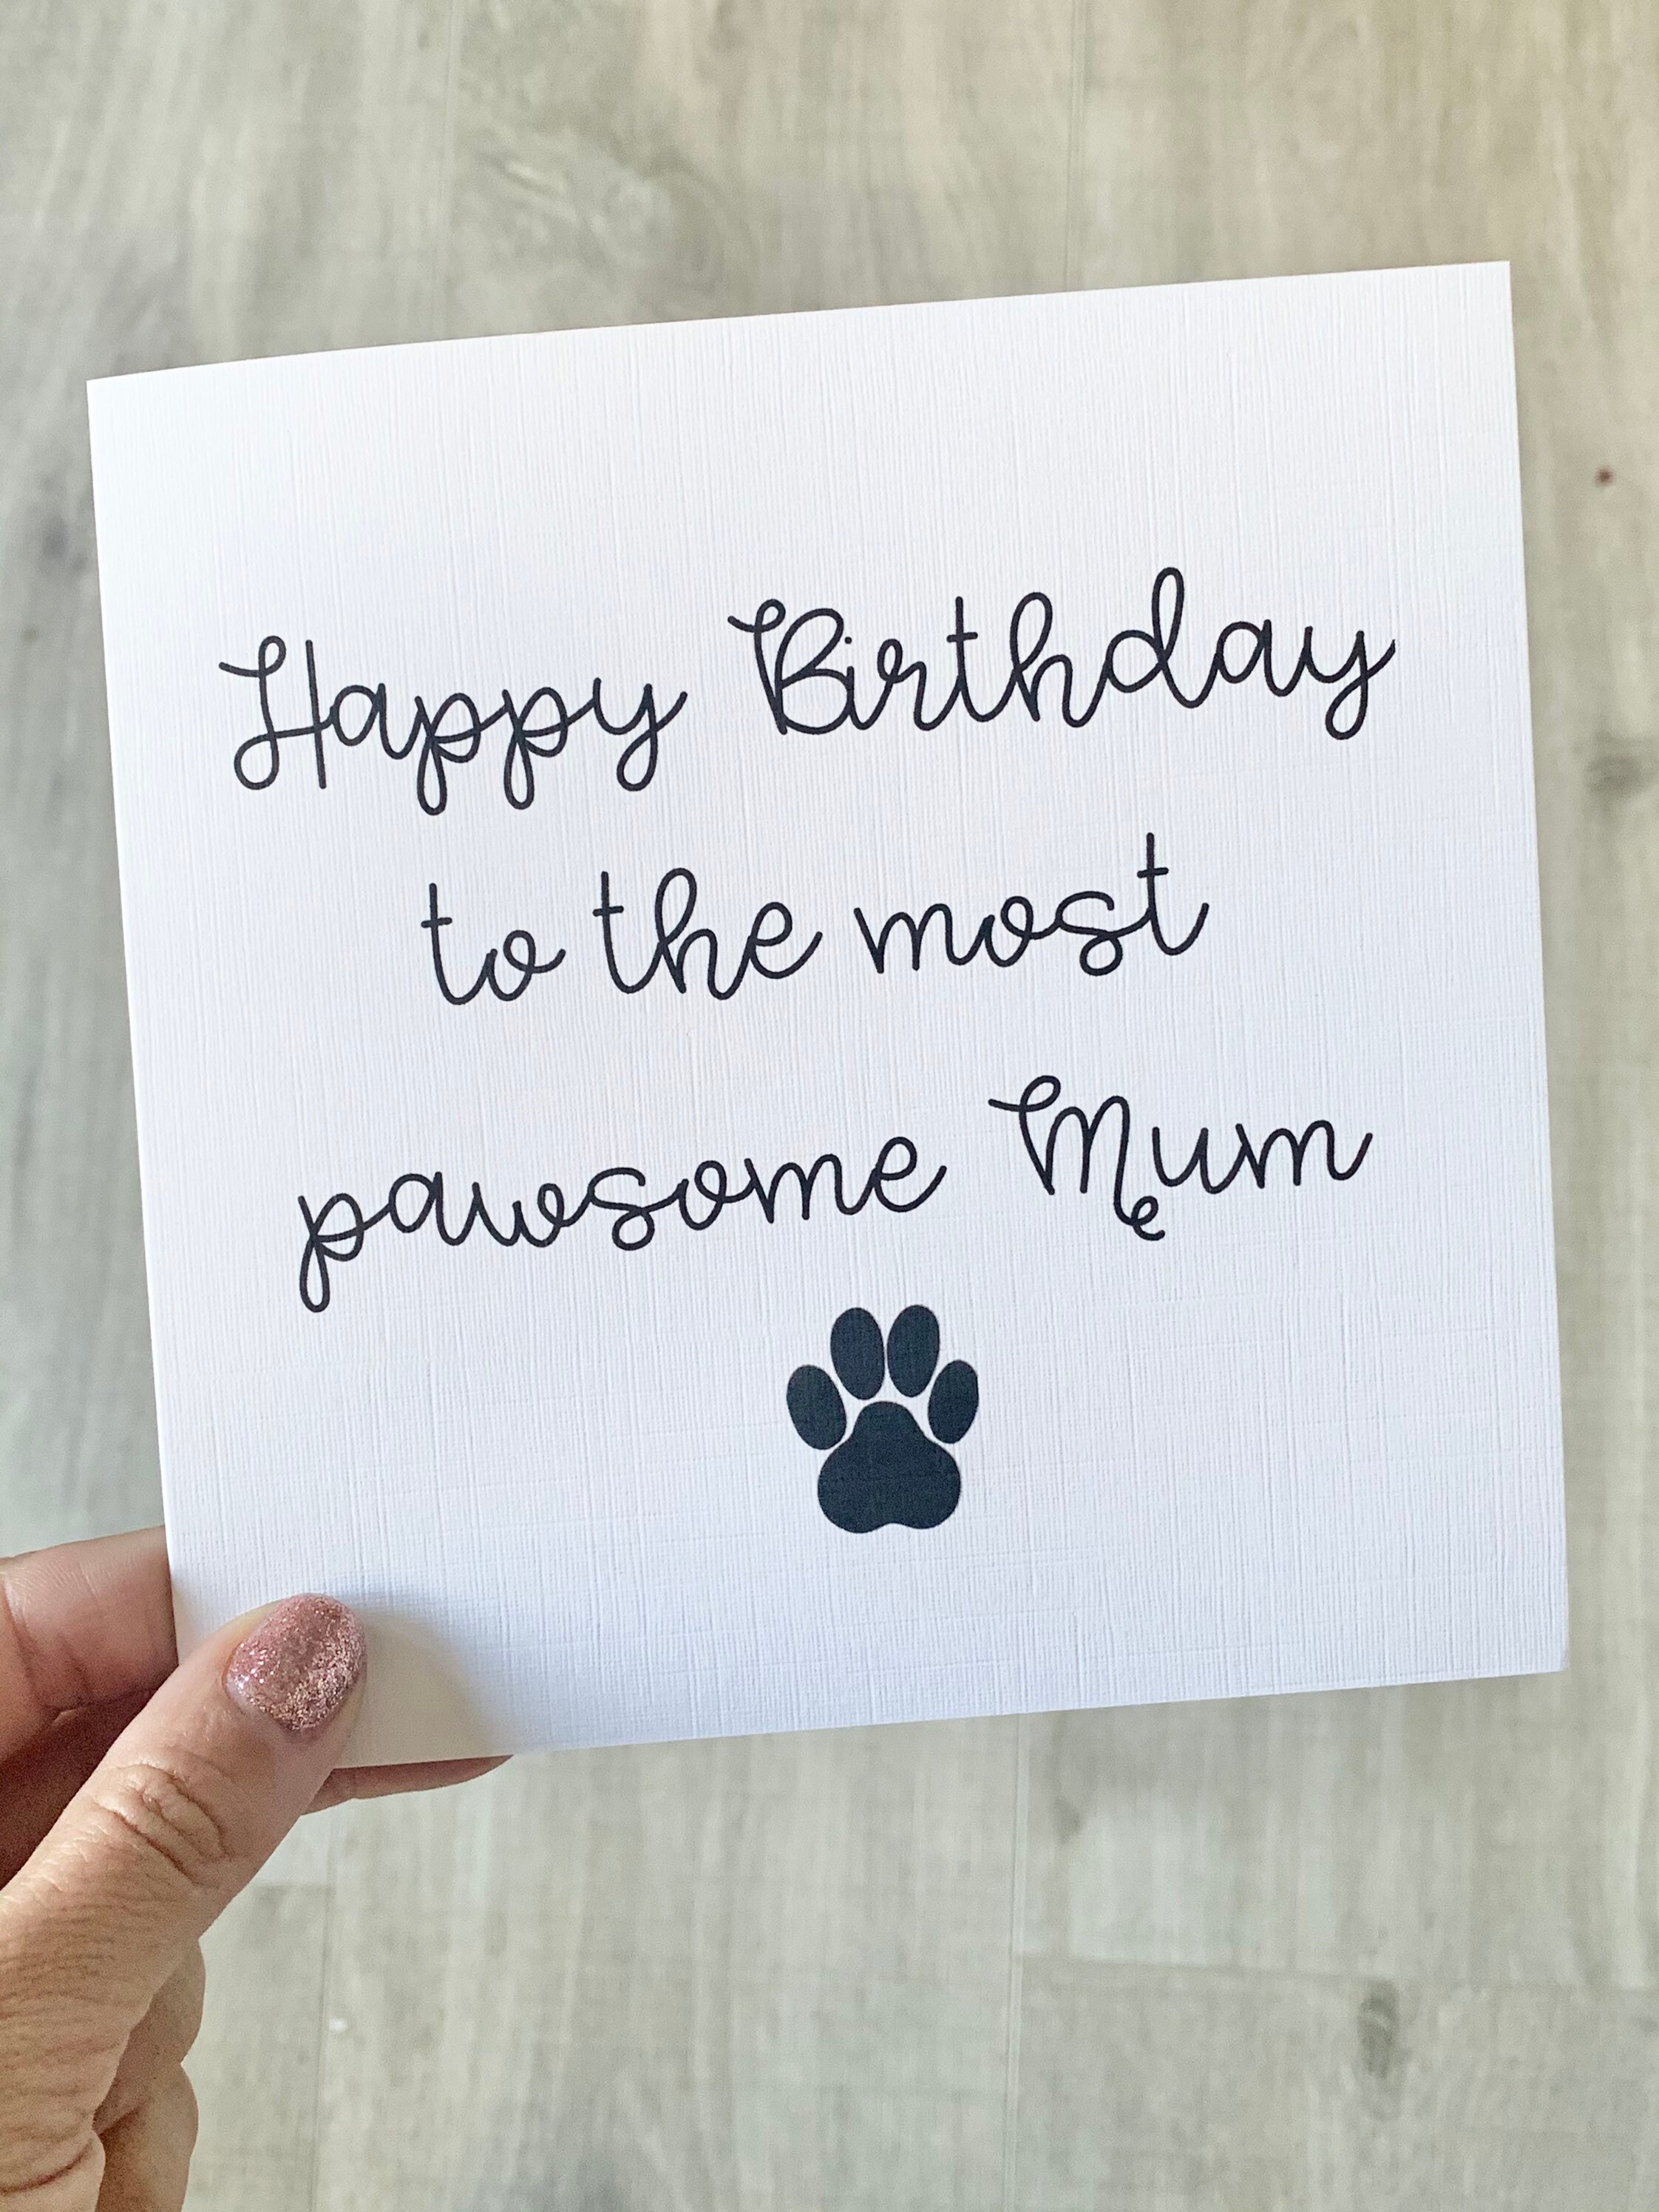 Happy Birthday
to the most
pawsome Mum